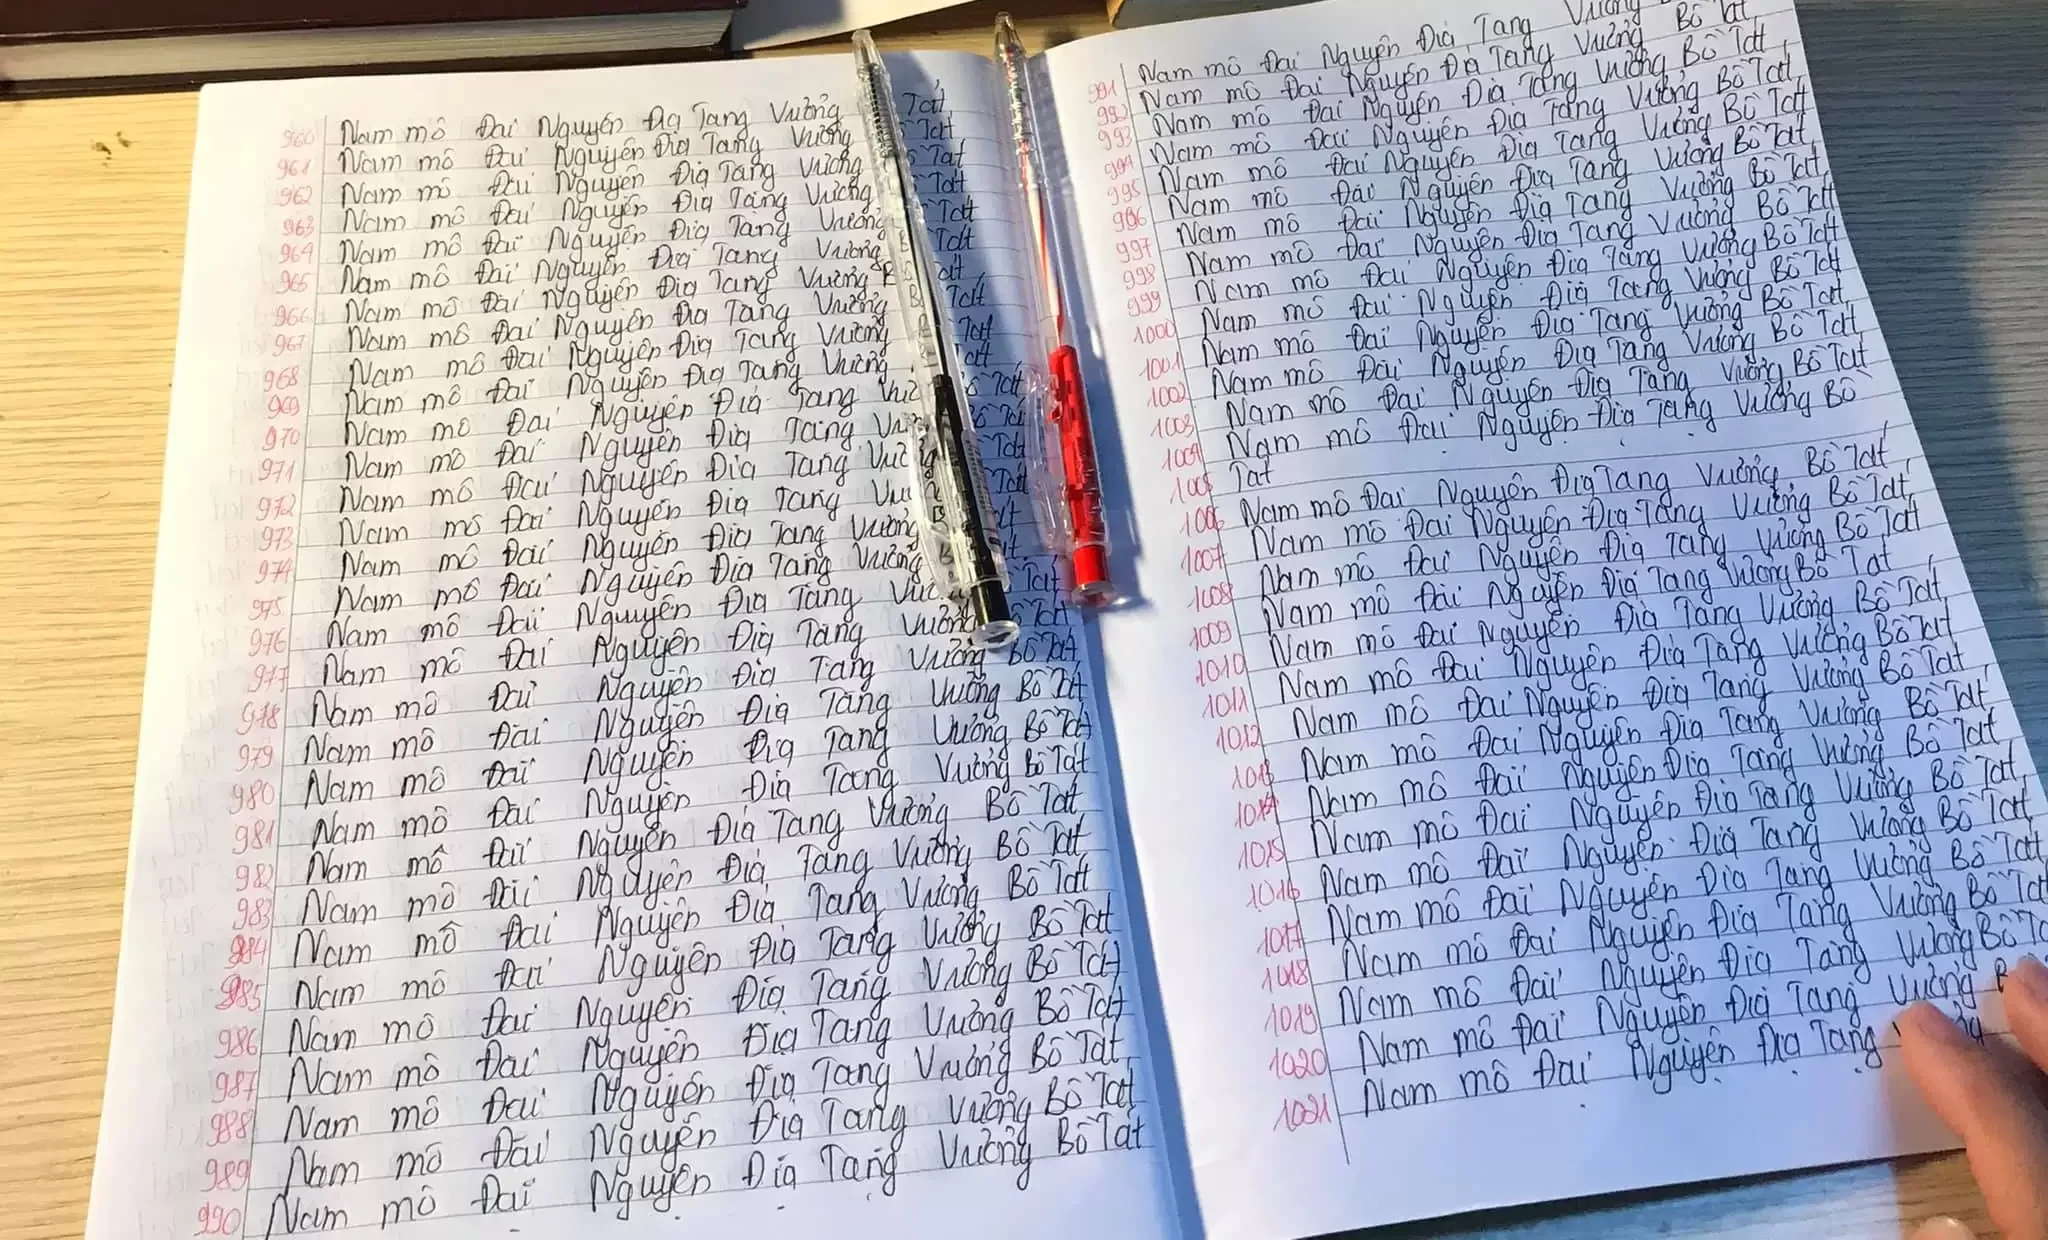 960 Nam mô Đại Nguyện Địa Tạng Vương Tát
961 Nam mô Đại Nguyện Địa Tạng Vương Tát
962 Nam mô Đại Nguyện Địa Tạng Vương Tát
963 Nam mô Đại Nguyện Địa Tạng Vương Tát
964 Nam mô Đại Nguyện Địa Tạng Vương Tát
965 Nam mô Đại Nguyện Địa Tạng Vương Tát
966 Nam mô Đại Nguyện Địa Tạng Vương Tát
967 Nam mô Đại Nguyện Địa Tạng Vương Tát
968 Nam mô Đại Nguyện Địa Tạng Vương Tát
969 Nam mô Đại Nguyện Địa Tạng Vương Tát
970 Nam mô Đại Nguyện Địa Tạng Tát
971 Nam mô Đại Nguyện Địa Tạng Tát
972 Nam mô Đại Nguyện Địa Tạng Tát
973 Nam mô Đại Nguyện Địa Tạng Tát
974 Nam mô Đại Nguyện Địa Tạng Vương
975 Nam mô Đại Nguyện Địa Tạng Vương
976 Nam mô Đại Nguyện Địa Tạng Tát
977 Nam mô Đại Nguyện Địa Tạng Vương Tát
978 Nam mô Đại Nguyện Địa Tạng Vương Bồ Tát
979 Nam mô Đại Nguyện Địa Tạng Vương Bồ Tát
980 Nam mô Đại Nguyện Địa Tạng Vương Bồ Tát
981 Nam mô Đại Nguyện Địa Tạng Vương Bồ Tát
982 Nam mô Đại Nguyện Địa Tạng Vương Bồ Tát
983 Nam mô Đại Nguyện Địa Tạng Vương Bồ Tát
984 Nam mô Đại Nguyện Địa Tạng Vương Bồ Tát
985 Nam mô Đại Nguyện Địa Tạng Vương Bồ Tát
986 Nam mô Đại Nguyện Địa Tạng Vương Bồ Tát
987 Nam mô Đại Nguyện Địa Tạng Vương Bồ Tát
988 Nam mô Đại Nguyện Địa Tạng Vương Bồ Tát
989 Nam mô Đại Nguyện Địa Tạng Vương Bồ Tát
990 Nam mô Đại Nguyện Địa Tạng Vương Bồ Tát
991 Nam mô Đại Nguyện Địa Tạng Vương
992 Nam mô Đại Nguyện Địa Tạng Vương Bồ Tát
993 Nam mô Đại Nguyện Địa Tạng Vương Bồ Tát
994 Nam mô Đại Nguyện Địa Tạng Vương Bồ Tát
995 Nam mô Đại Nguyện Địa Tạng Vương Bồ Tát
996 Nam mô Đại Nguyện Địa Tạng Vương Bồ Tát
997 Nam mô Đại Nguyện Địa Tạng Vương Bồ Tát
998 Nam mô Đại Nguyện Địa Tạng Vương Bồ Tát
999 Nam mô Đại Nguyện Địa Tạng Vương Bồ Tát
1000 Nam mô Đại Nguyện Địa Tạng Vương Bồ Tát
1001 Nam mô Đại Nguyện Địa Tạng Vương Bồ Tát
1002 Nam mô Đại Nguyện Địa Tạng Vương Bồ Tát
1003 Nam mô Đại Nguyện Địa Tạng Vương Bồ Tát
1004 Nam mô Đại Nguyện Địa Tạng Vương Bồ
1005 Tát
1006 Nam mô Đại Nguyện Địa Tạng Vương Bồ Tát
1007 Nam mô Đại Nguyện Địa Tạng Vương Bồ Tát
1008 Nam mô Đại Nguyện Địa Tạng Vương Bồ Tát
1009 Nam mô Đại Nguyện Địa Tạng Vương Bồ Tát
1010 Nam mô Đại Nguyện Địa Tạng Vương Bồ Tát
1011 Nam mô Đại Nguyện Địa Tạng Vương Bồ Tát
1012 Nam mô Đại Nguyện Địa Tạng Vương Bồ Tát
1013 Nam mô Đại Nguyện Địa Tạng Vương Bồ Tát
1014 Nam mô Đại Nguyện Địa Tạng Vương Bồ Tát
1015 Nam mô Đại Nguyện Địa Tạng Vương Bồ Tát
1016 Nam mô Đại Nguyện Địa Tạng Vương Bồ Tát
1017 Nam mô Đại Nguyện Địa Tạng Vương Bồ Tát
1018 Nam mô Đại Nguyện Địa Tạng Vương Bồ Tát
1019 Nam mô Đại Nguyện Địa Tạng Vương Bồ
1020 Nam mô Đại Nguyện Địa Tạng Vương
1021 Nam mô Đại Nguyện Địa Tạng